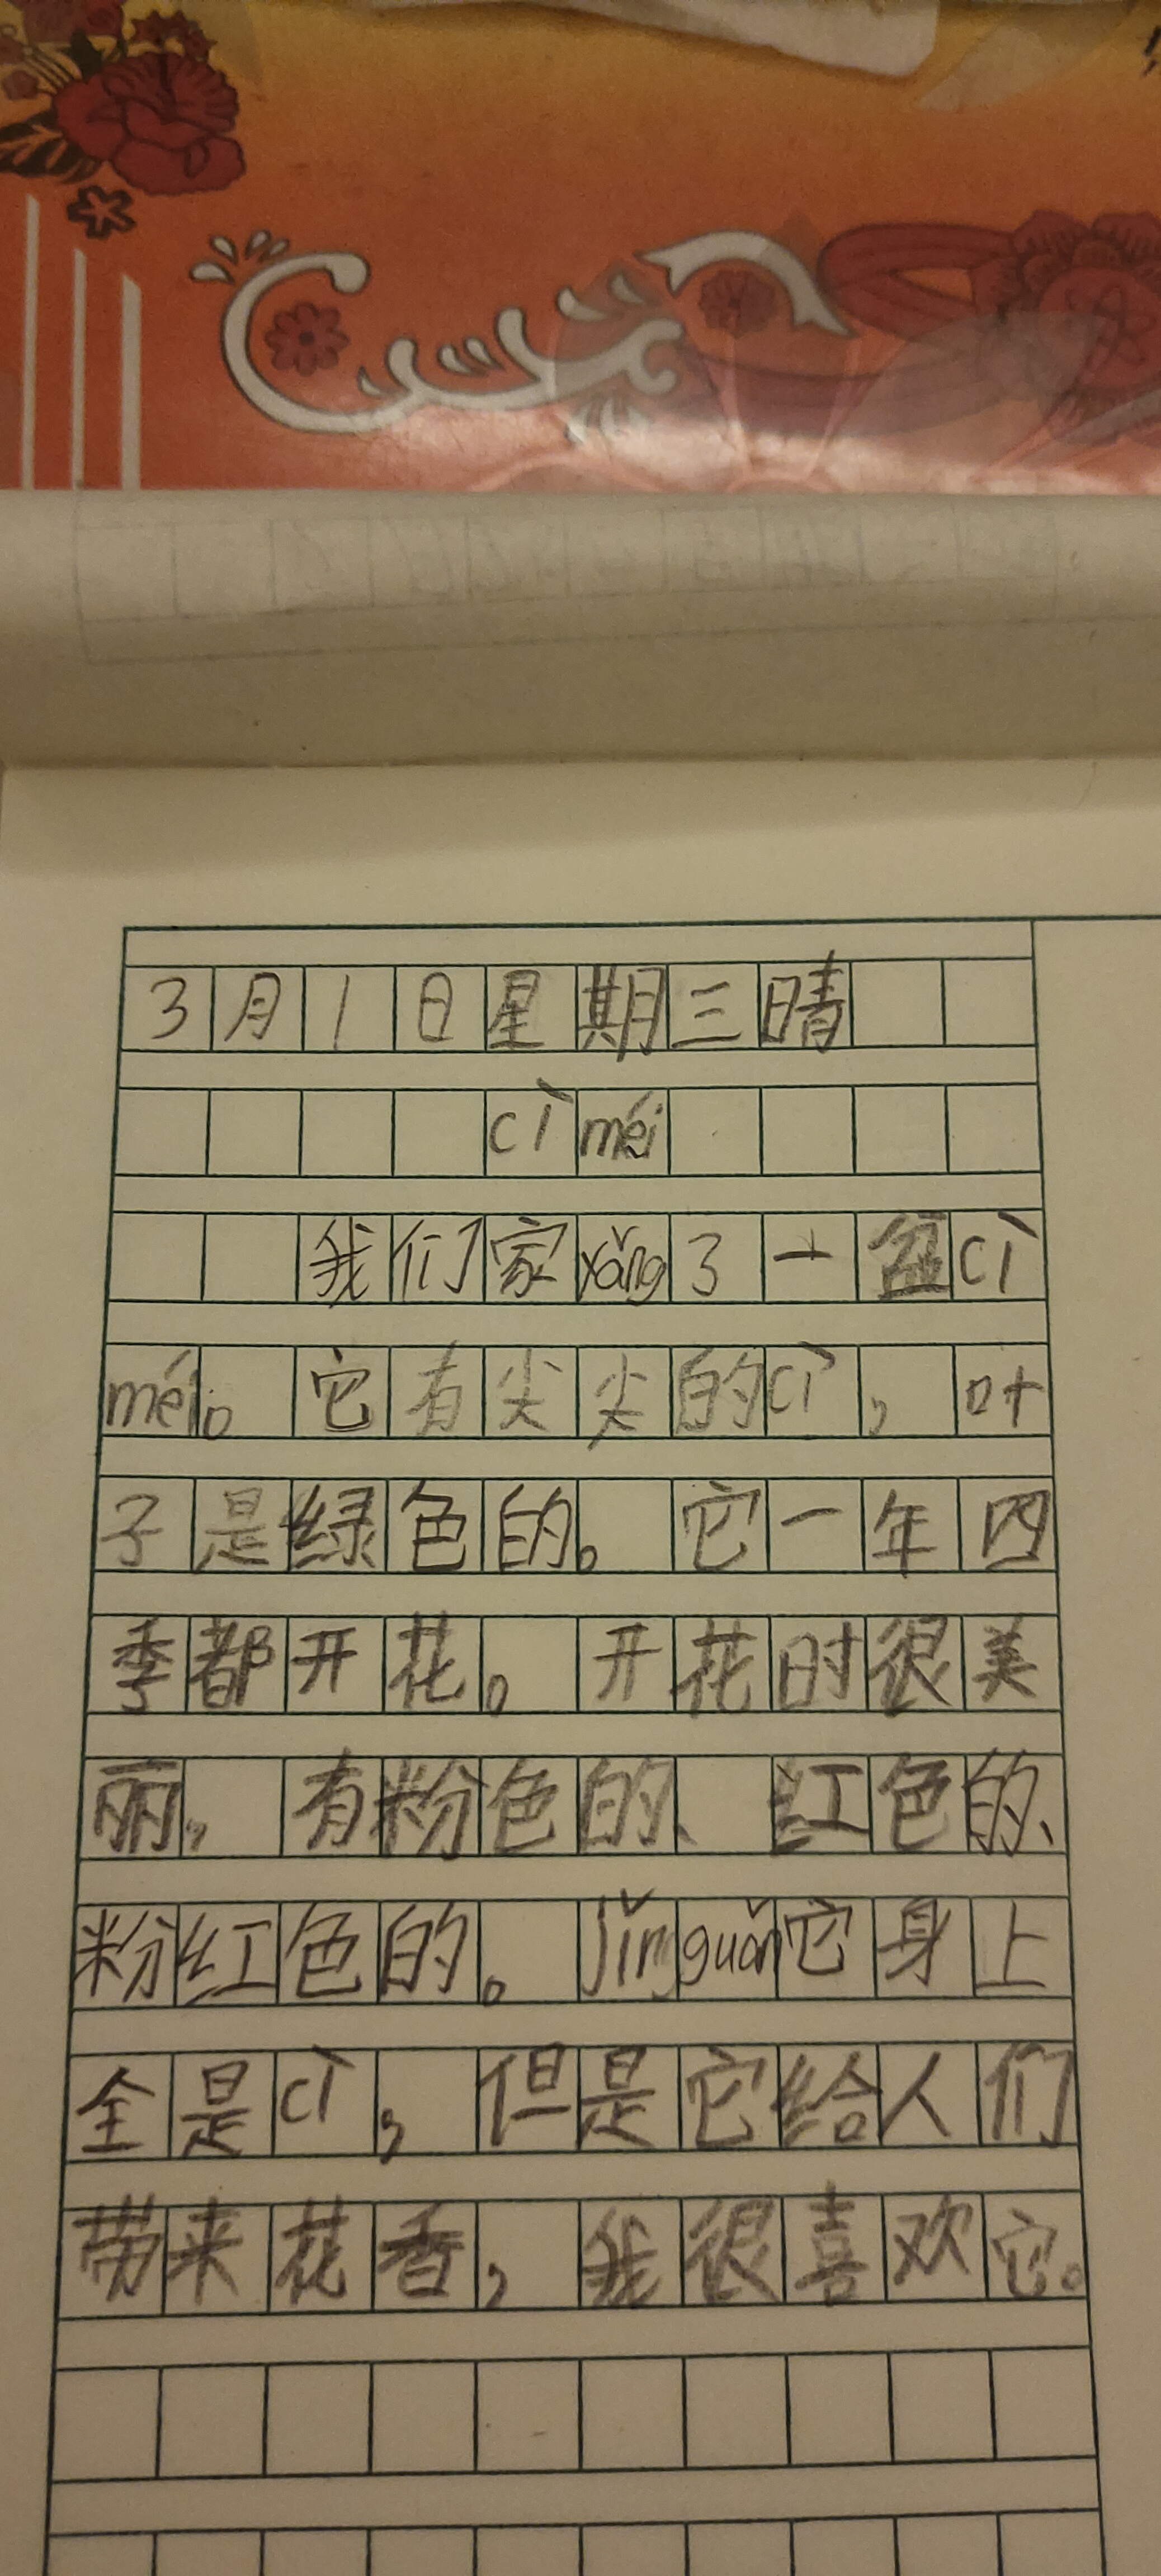 3月1日星期三晴
cì méi
我们家xǎng了一盆cì
méi。它有尖尖的cì，叶
子是绿色的。它一年四
季都开花。开花时很美
丽，有粉色的、红色的、
粉红色的。jǐnguǎn它身上
全是cì，但是它给人们
带来花香，我很喜欢它。